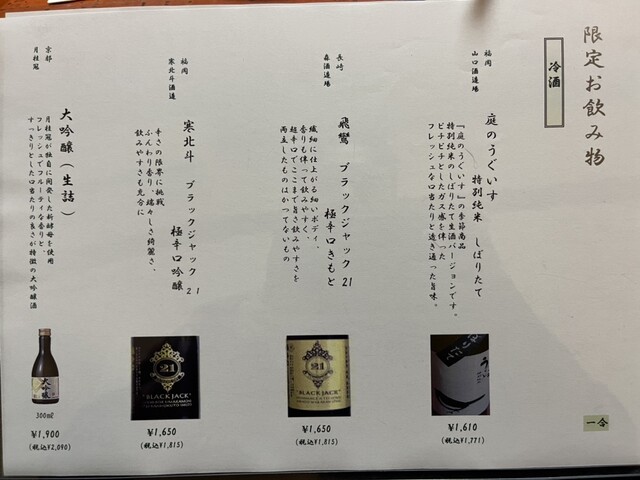 限定お飲み物
冷酒
一合
福岡
山口酒造場
庭のうぐいす
特別純米　しぼりたて
『庭のうぐいす』の季節商品
特別純米のしぼりたて生酒バージョンです。
ピチピチとしたガス感を伴った
フレッシュな口当たりと透き通った旨味。
¥1,610
(税込¥1,771)
長崎
森酒造場
飛鸞　ブラックジャック 21
極辛口きもと
繊細に仕上がる細いボディ、
香りも伴って飲みやすく、
超辛口でここまで旨さ飲みやすさを
両立したものはかつてないもの
21
"BLACK JACK"
¥1,650
(税込¥1,815)
福岡
寒北斗酒造
寒北斗　ブラックジャック 21
極辛口吟醸
辛さの限界に挑戦
ふんわり香り、瑞々しさ綺麗さ、
飲みやすさも充分に
21
"BLACK JACK"
¥1,650
(税込¥1,815)
京都
月桂冠
大吟醸（生詰）
月桂冠が独自に開発した新酵母を使用
フレッシュでフルーティな香りと、
すっきりとした口当たりの良さが特徴の大吟醸酒
大吟醸
300ml
¥1,900
(税込¥2,090)